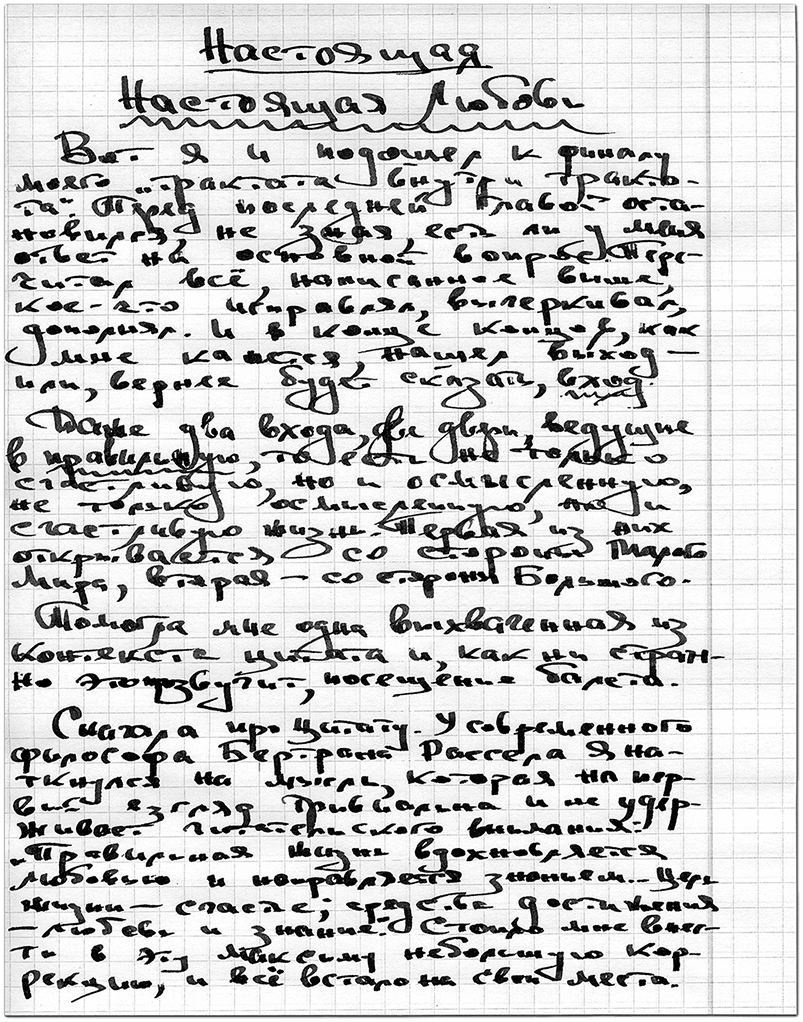 Настоящая
Настоящая Любовь
Вот я и подошел к финалу
моего „трактата внутри тракта-
та“. Перед последней главой оста-
новился, не зная, есть ли у меня
ответ на основной вопрос. Пере-
читал всё, написанное выше,
кое-что исправлял, вычеркивал,
дополнял. И в конце концов, как
мне кажется, нашел выход —
или, вернее будет сказать, вход.
Даже два входа, две двери, ведущие
в правильную, то есть не только
счастливую, но и осмысленную,
не только осмысленную, но и
счастливую жизнь. Первая из них
открывается со стороны Малого
Мира, вторая — со стороны Большого.
Помогла мне одна выхваченная из
контекста цитата и, как ни стран-
но это прозвучит, посещение балета.
Сначала про цитату. У современного
философа Бертрана Рассела я на-
ткнулся на мысль, которая на пер-
вый взгляд тривиальна и не удер-
живает читательского внимания:
„Правильная жизнь вдохновляется
любовью и направляется знанием... Цель
жизни — счастье; средства достижения
— любовь и знание“. Стоило мне внес-
ти в эту максиму небольшую кор-
рекцию, и всё встало на свои места.